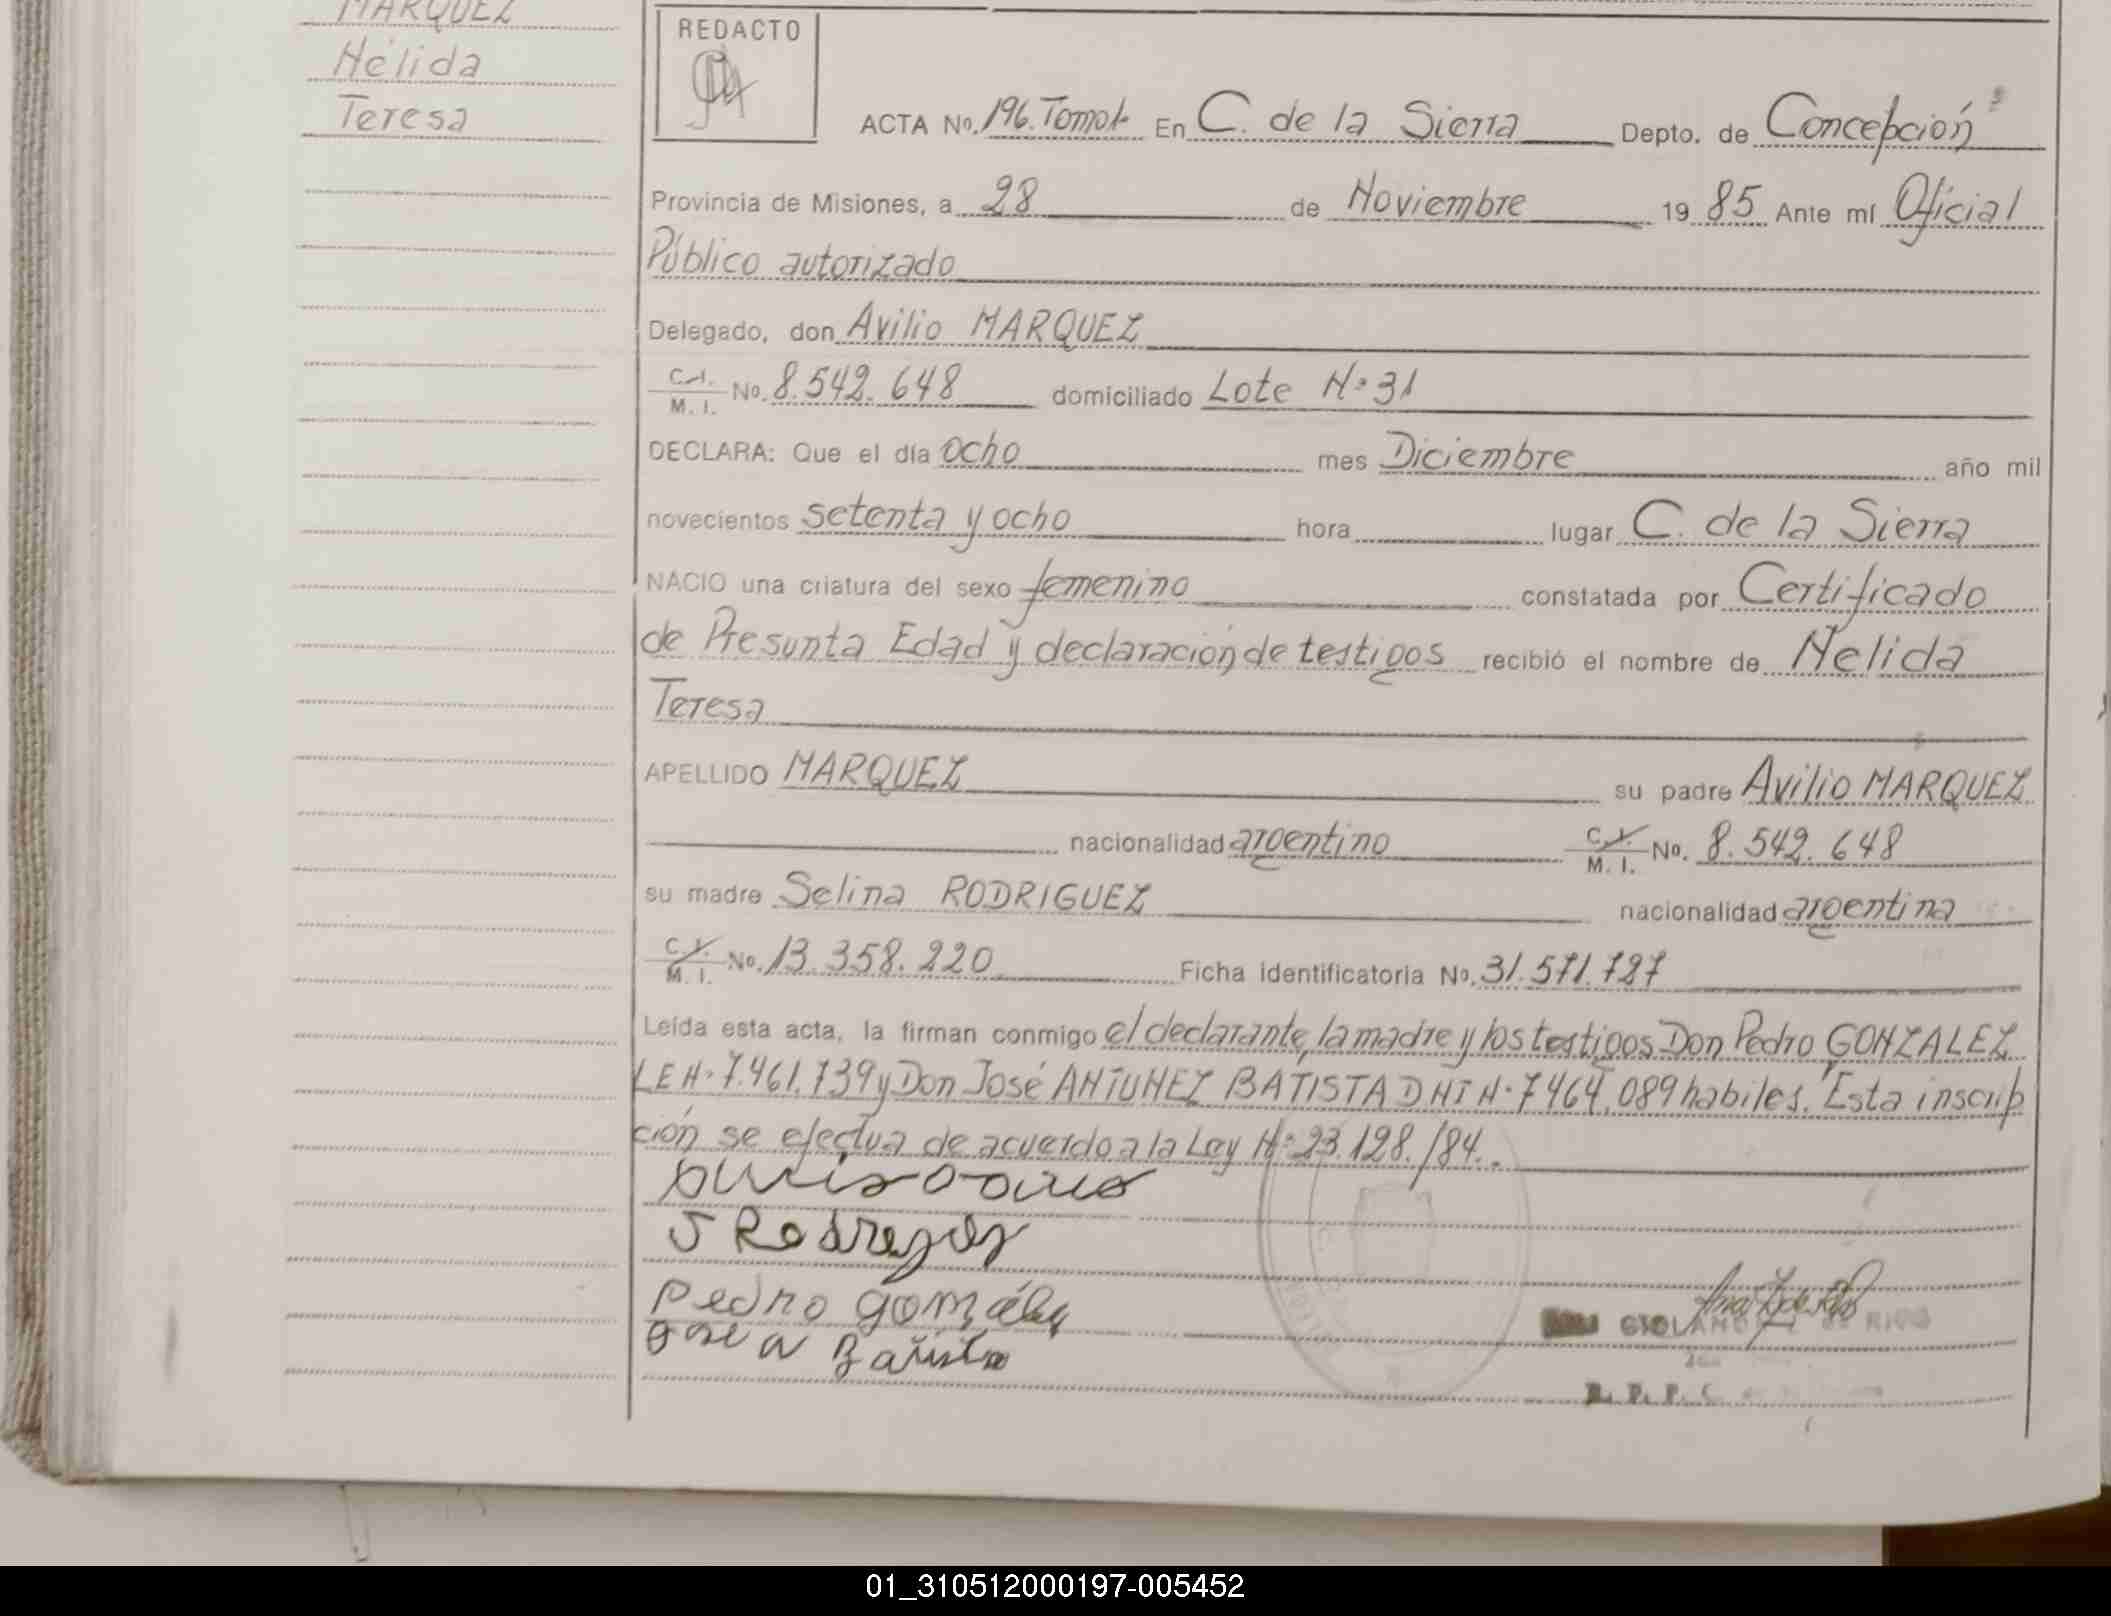 MARQUEZ
Nélida
Teresa
REDACTO
ACTA No. 196. Tomo I En C. de la Sierra Depto. de Concepción
Provincia de Misiones, a 28 de Noviembre 19 85 Ante mí Oficial
Público autorizado
Delegado, don Avilio MARQUEZ
C.I. M. I. No. 8.542.648 domiciliado Lote Nº 31
DECLARA: Que el día ocho mes Diciembre año mil
novecientos setenta y ocho hora lugar C. de la Sierra
NACIO una criatura del sexo femenino constatada por Certificado
de Presunta Edad y declaración de testigos recibió el nombre de Nélida
Teresa
APELLIDO MARQUEZ su padre Avilio MARQUEZ
nacionalidad argentino C.I. M. I. No. 8.542.648
su madre Selina RODRIGUEZ nacionalidad argentina
C.I. M. I. No. 13.358.220 Ficha identificatoria No. 31.571.727
Leída esta acta, la firman conmigo el declarante, la madre y los testigos Don Pedro GONZALEZ
LE Nº 7.461.739 y Don José ANTUNEZ BATISTA DNI Nº 7464.089 habiles. Esta inscrip
ción se efectua de acuerdo a la Ley Nº 23.128./84..
S Rodreges
Pedro gonzález
Jose A Batista
R. P. P. C
01_310512000197-005452